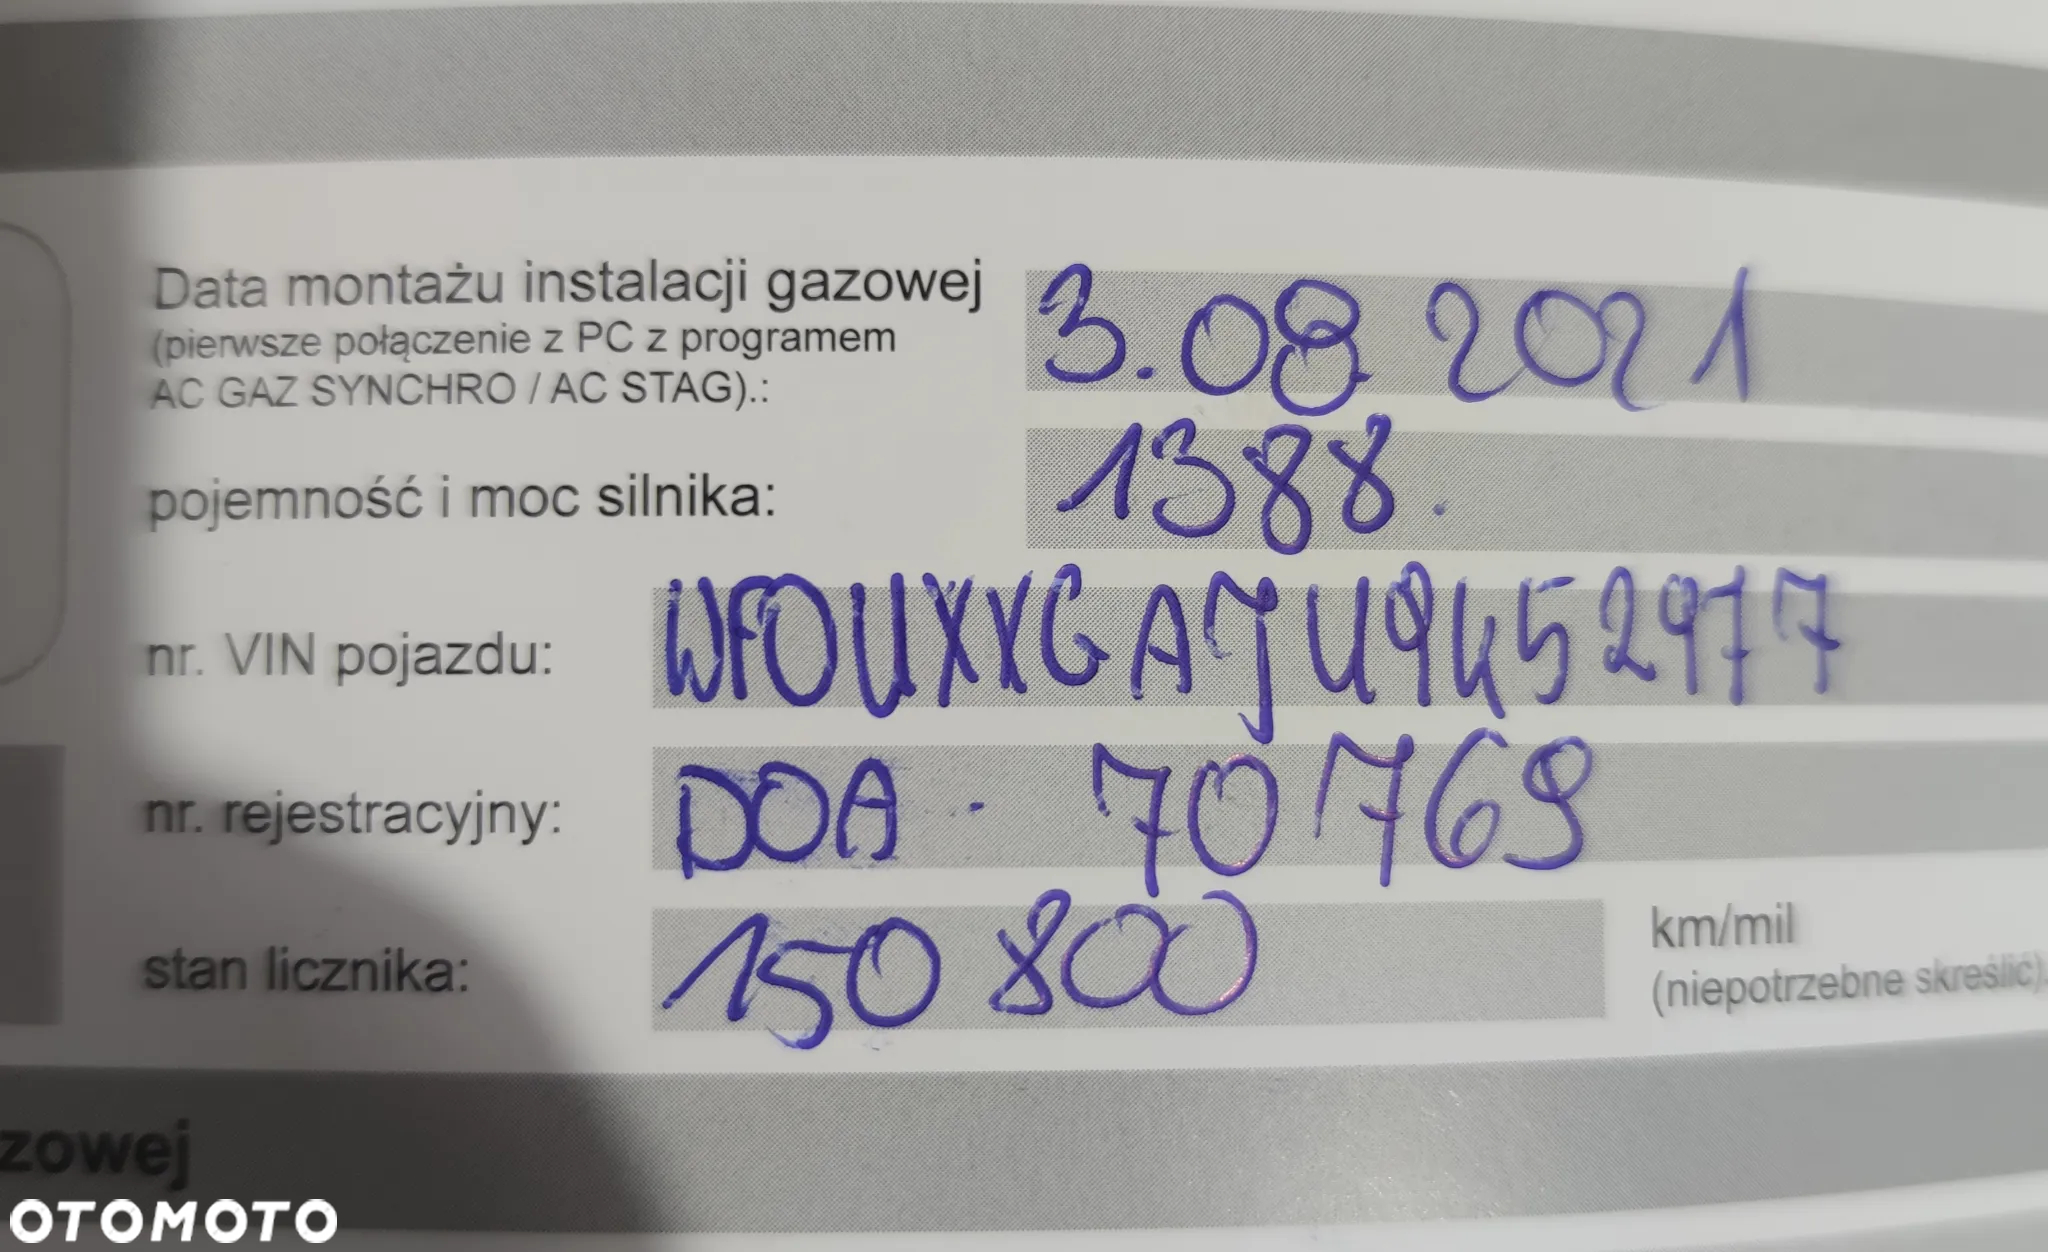 Data montażu instalacji gazowej 3.08 2021
(pierwsze połączenie z PC z programem
AC GAZ SYNCHRO / AC STAG).:
pojemność i moc silnika: 1388.
nr. VIN pojazdu: WFOUXXGAJU9452977
nr. rejestracyjny: DOA - 70769
stan licznika: 150 800 km/mil
(niepotrzebne skreślić).
zowej
OTOMOTO